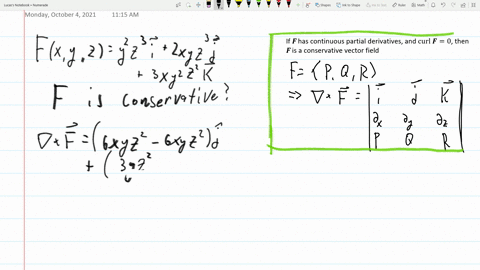 Lucas's Notebook - Numerade
Monday, October 4, 2021 11:15 AM
F(x,y,z) = y²z³ i⃗ + 2xyz³ j⃗
+ 3xy²z² k⃗
F is conservative?
∇×F⃗ = (6xyz² − 6xyz²) i⃗
+ (3y²z²
If F has continuous partial derivatives, and curl F = 0, then
F is a conservative vector field
F = ⟨P, Q, R⟩
⇒ ∇×F⃗ = | i⃗ j⃗ k⃗ |
∂x ∂y ∂z
P Q R